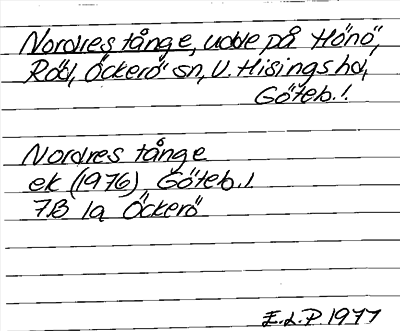 Nordres tånge, udde på Hönö,
Röd, Öckerö sn, V. Hisings hd,
Göteb. l.
Nordres tånge
ek (1976), Göteb. l.
7B 1a Öckerö
E.L.P. 1977